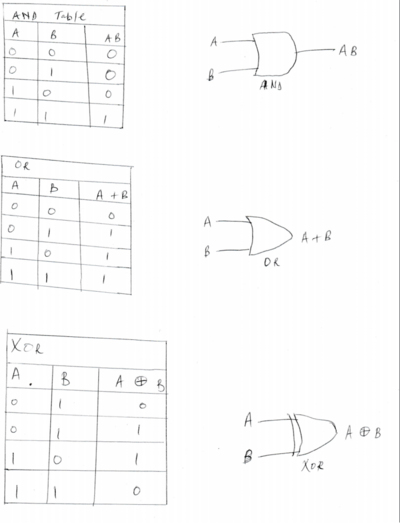 AND Table
A B AB
0 0 0
0 1 0
1 0 0
1 1 1
A
B
AB
AND
OR
A B A + B
0 0 0
0 1 1
1 0 1
1 1 1
A
B
A + B
OR
XOR
A . B A ⊕ B
0 1 0
0 1 1
1 0 1
1 1 0
A
B
A ⊕ B
XOR